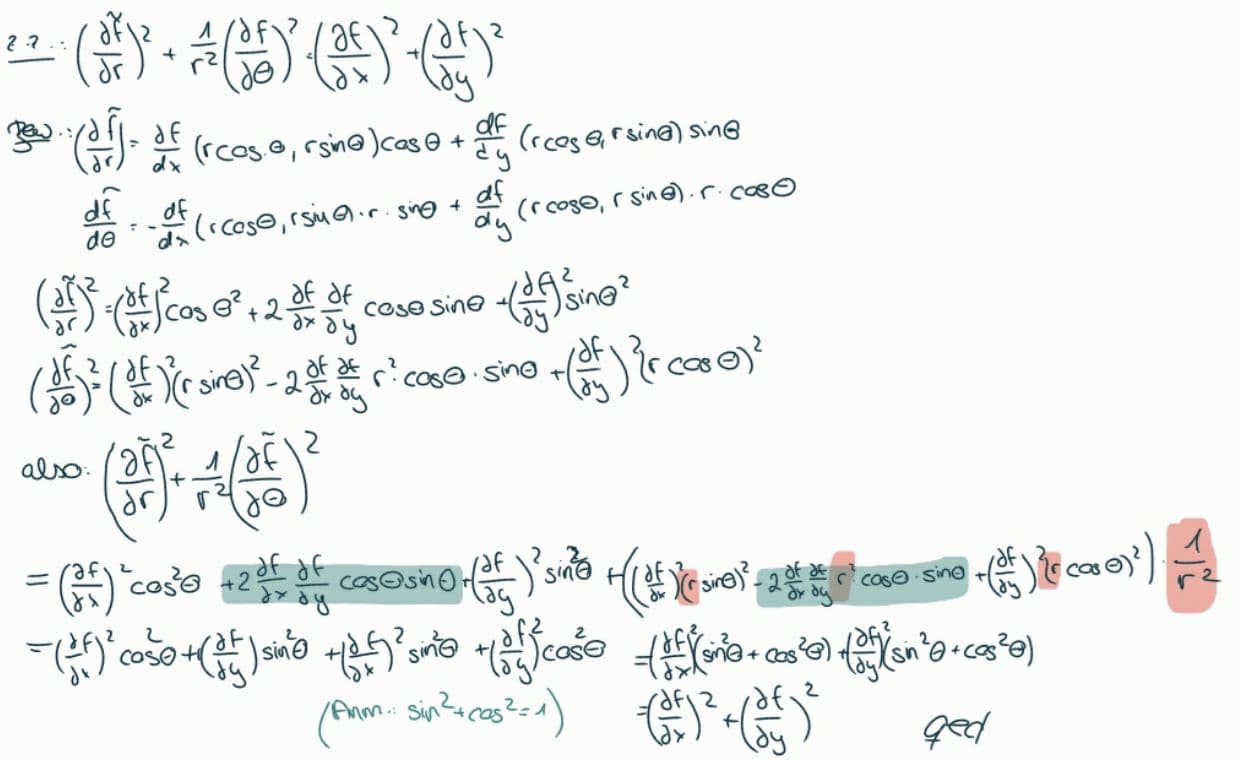 z.z.: (∂f̃/∂r)² + 1/r² (∂f/∂θ)² = (∂f/∂x)² + (∂f/∂y)²
Bew.: (∂f̃/∂r) = ∂f/dx (r cos θ, r sinθ) cos θ + df/dy (r cos θ, r sinθ) sinθ
df̃/dθ = - df/dx (r cosθ, r sin θ) · r · sinθ + df/dy (r cosθ, r sin θ) · r · cosθ
(∂f̃/∂r)² = (∂f/∂x)² cos θ² + 2 ∂f/∂x ∂f/∂y cosθ sinθ + (∂f/∂y)² sinθ²
(∂f̃/∂θ)² = (∂f/∂x)² (r sinθ)² - 2 ∂f/∂x ∂f/∂y r² cosθ · sinθ + (∂f/∂y)² (r cos θ)²
also: (∂f̃/∂r)² + 1/r² (∂f̃/∂θ)²
= (∂f/∂x)² cos²θ + 2 ∂f/∂x ∂f/∂y cosθ sinθ + (∂f/∂y)² sin²θ + ((∂f/∂x)² (r sinθ)² - 2 ∂f/∂x ∂f/∂y r² cosθ · sinθ + (∂f/∂y)² (r cos θ)²) · 1/r²
= (∂f/∂x)² cos²θ + (∂f/∂y) sin²θ + (∂f/∂x)² sin²θ + (∂f/∂y)² cos²θ = (∂f/∂x)² (sin²θ + cos²θ) + (∂f/∂y)² (sin²θ + cos²θ)
(Anm.: sin² + cos² = 1) = (∂f/∂x)² + (∂f/∂y)² qed